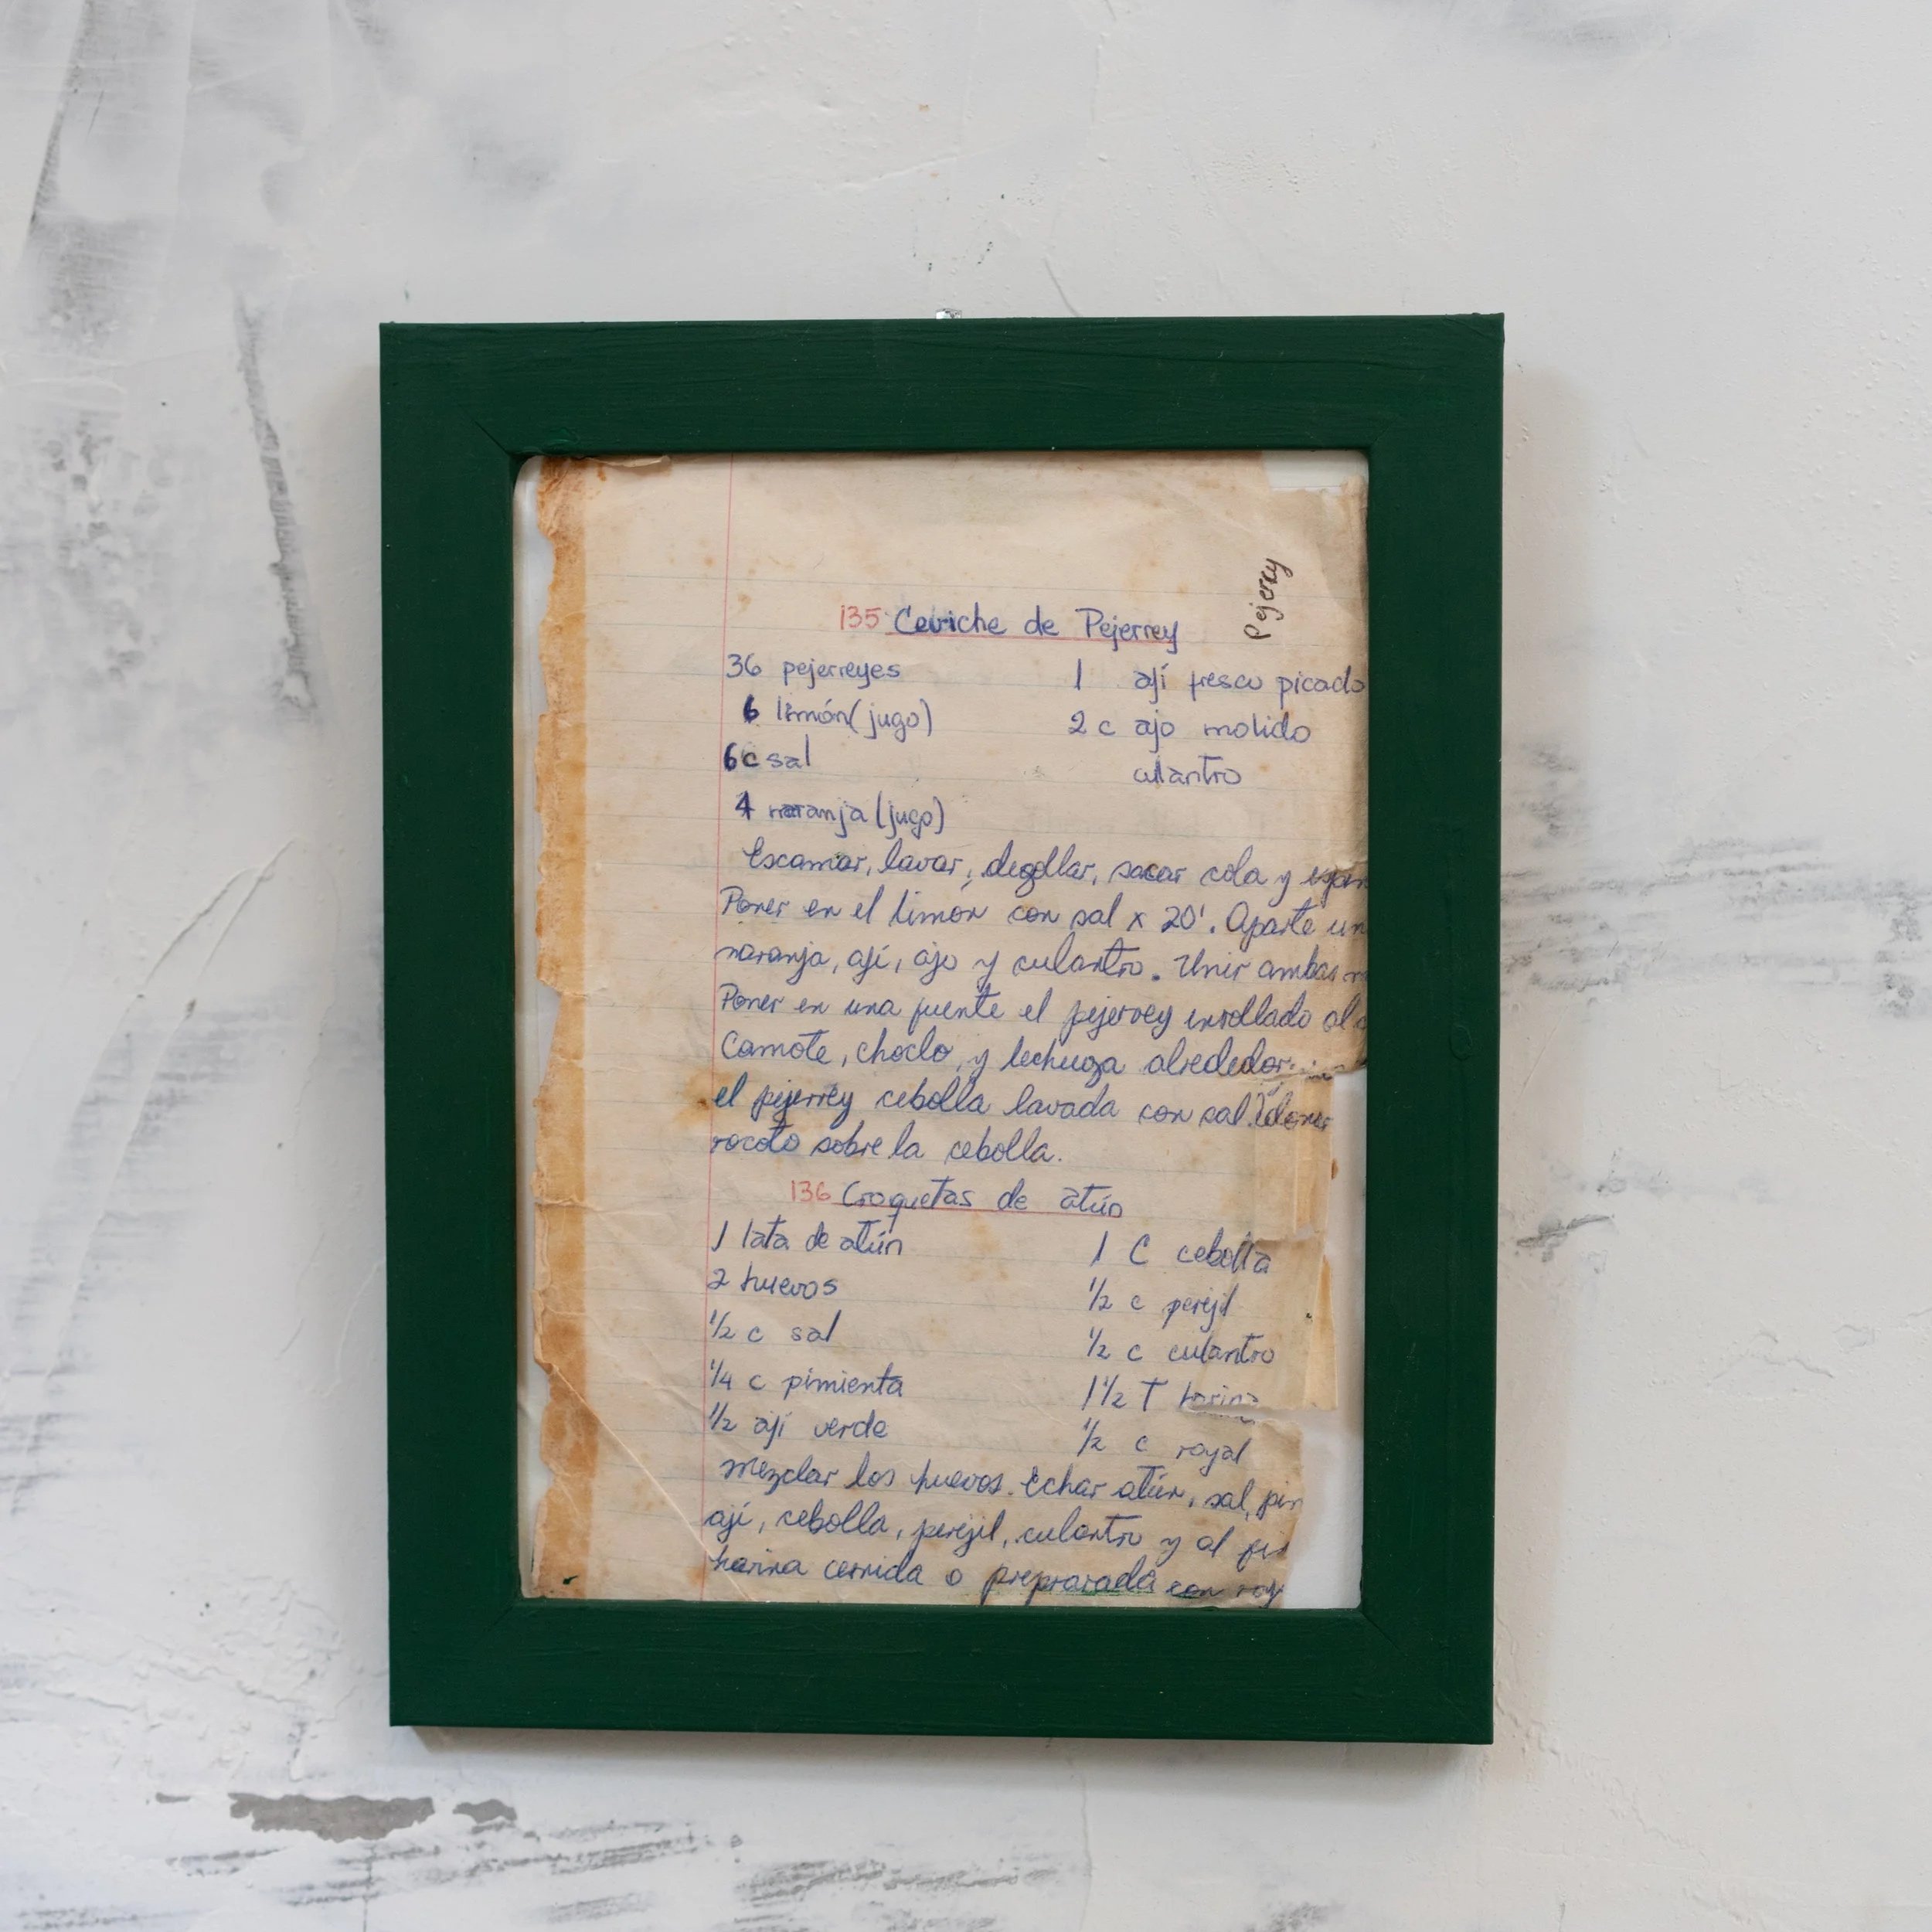 Pejerrey
135 Ceviche de Pejerrey
36 pejerreyes 1 ají fresco picado
6 limón (jugo) 2 c ajo molido
6 c sal culantro
4 naranja (jugo)
Escamar, lavar, degollar, sacar cola y
Poner en el limon con sal x 20'. Aparte un
naranja, ají, ajo y culantro. Unir ambas
Poner en una fuente el pejerrey enrollado al
Camote, choclo, y lechuga alrededor.
el pejerrey cebolla lavada con sal.
rocoto sobre la cebolla.
136 Croquetas de atún
1 lata de atún 1 C cebolla
2 huevos 1/2 c perejil
1/2 c sal 1/2 c culantro
1/4 c pimienta 1 1/2 T harina
1/2 ají verde 1/2 c royal
Mezclar los huevos. Echar atún, sal, pim
ají, cebolla, perejil, culantro y al fin
harina cernida o preprarada con roy